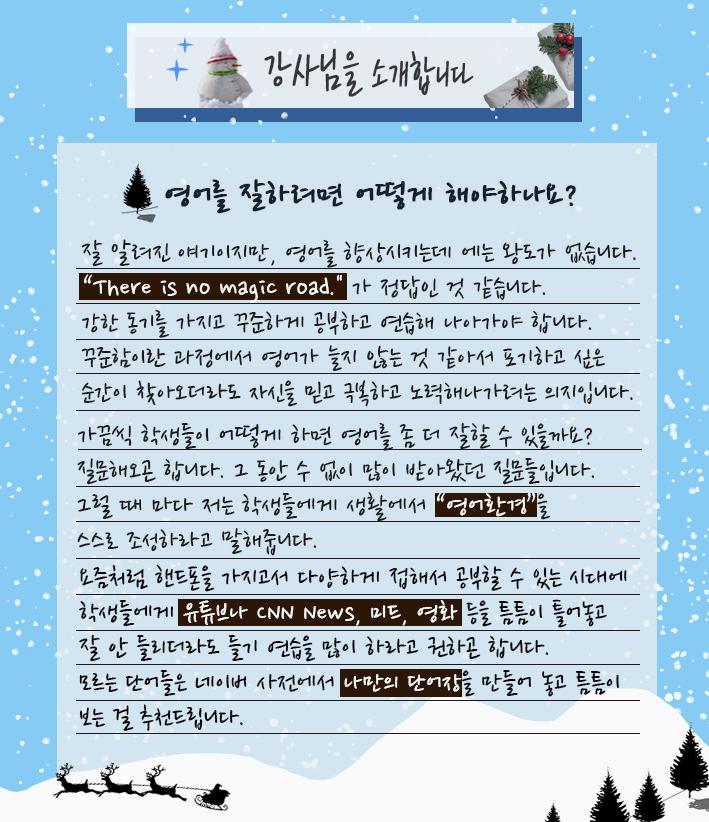 강사님을 소개합니다
영어를 잘하려면 어떻게 해야하나요?
잘 알려진 얘기이지만, 영어를 향상시키는데 에는 왕도가 없습니다.
“There is no magic road." 가 정답인 것 같습니다.
강한 동기를 가지고 꾸준하게 공부하고 연습해 나아가야 합니다.
꾸준함이란 과정에서 영어가 늘지 않는 것 같아서 포기하고 싶은
순간이 찾아오더라도 자신을 믿고 극복하고 노력해나가려는 의지입니다.
가끔씩 학생들이 어떻게 하면 영어를 좀 더 잘할 수 있을까요?
질문해오곤 합니다. 그 동안 수 없이 많이 받아왔던 질문들입니다.
그럴 때 마다 저는 학생들에게 생활에서 “영어환경”을
스스로 조성하라고 말해줍니다.
요즘처럼 핸드폰을 가지고서 다양하게 접해서 공부할 수 있는 시대에
학생들에게 유튜브나 CNN News, 미드, 영화 등을 틈틈이 틀어놓고
잘 안 들리더라도 듣기 연습을 많이 하라고 권하곤 합니다.
모르는 단어들은 네이버 사전에서 나만의 단어장을 만들어 놓고 틈틈이
보는 걸 추천드립니다.